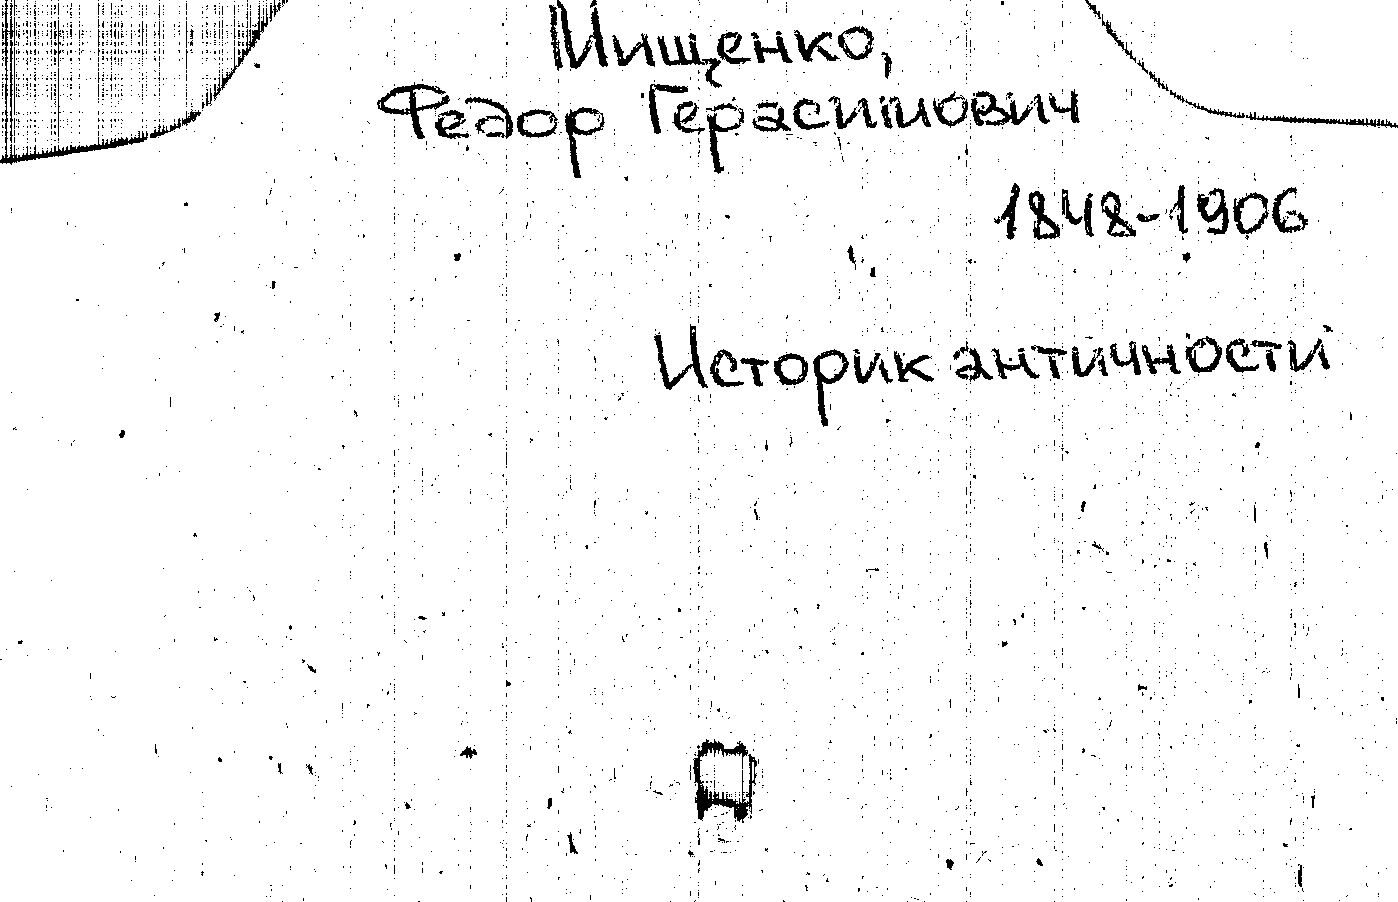 Мищенко,
Федор Герасимович
1848-1906
Историк античности